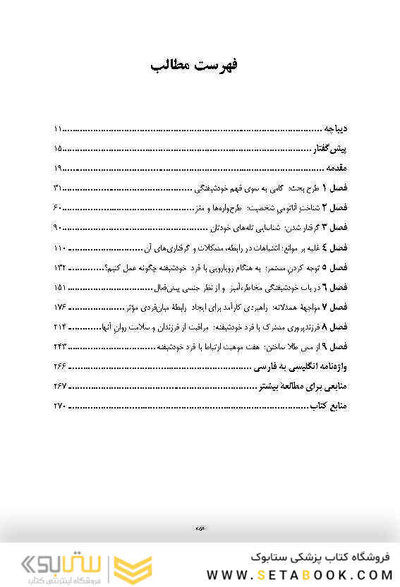 فهرست مطالب
دیباجه ... ۱۱
پیش‌گفتار ... ۱۵
مقدمه ... ۱۹
فصل ۱ طرح بحث: گامی به سوی فهم خودشیفتگی ... ۳۱
فصل ۲ شناختِ آناتومی شخصیت: طرح‌واره‌ها و مغز ... ۶۰
فصل ۳ گرفتار شدن: شناسایی تله‌های خودتان ... ۹۰
فصل ۴ غلبه بر موانع: اشتباهات در رابطه، مشکلات و گرفتاری‌های آن ... ۱۱۰
فصل ۵ توجه کردنِ مستمر: به هنگام رویارویی با فرد خودشیفته چگونه عمل کنیم؟ ... ۱۳۲
فصل ۶ در باب خودشیفتگی مخاطره‌آمیز و از نظر جنسی بیش‌فعال ... ۱۵۱
فصل ۷ مواجههٔ همدلانه: راهبردی کارآمد برای ایجاد رابطهٔ میان‌فردی مؤثر ... ۱۷۶
فصل ۸ فرزندپروری مشترک با فرد خودشیفته: مراقبت از فرزندان و سلامت روانِ آنها ... ۲۱۴
فصل ۹ از مس طلا ساختن: هفت موهبت ارتباط با فرد خودشیفته ... ۲۴۳
واژه‌نامه انگلیسی به فارسی ... ۲۶۶
منابعی برای مطالعهٔ بیشتر ... ۲۶۷
منابع کتاب ... ۲۷۰
فروشگاه کتاب پزشکی ستابوک
WWW.SETABOOK.COM
ستابوک
فروشگاه اینترنتی کتاب